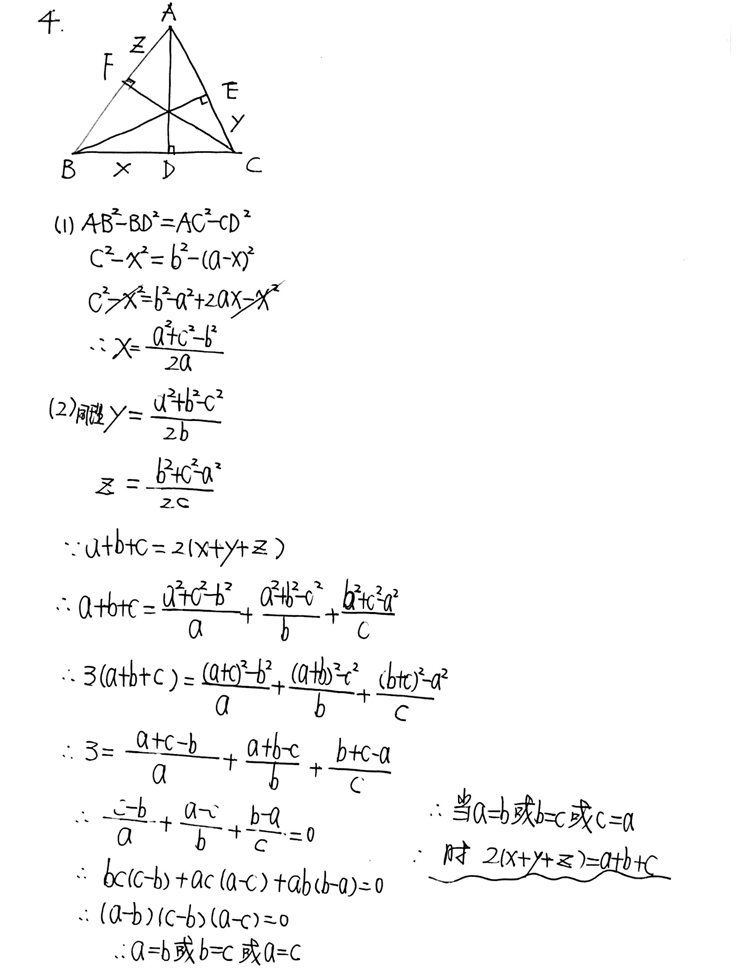 4.
A
Z
F
E
y
B x D C
(1) AB²-BD²=AC²-CD²
c²-x²=b²-(a-x)²
c²-x²=b²-a²+2ax-x²
∴ x=\frac{a²+c²-b²}{2a}
(2)同理 y=\frac{a²+b²-c²}{2b}
z=\frac{b²+c²-a²}{2c}
∵a+b+c=2(x+y+z)
∴a+b+c=\frac{a²+c²-b²}{a}+\frac{a²+b²-c²}{b}+\frac{b²+c²-a²}{c}
∴3(a+b+c)=\frac{(a+c)²-b²}{a}+\frac{(a+b)²-c²}{b}+\frac{(b+c)²-a²}{c}
∴3=\frac{a+c-b}{a}+\frac{a+b-c}{b}+\frac{b+c-a}{c}
∴\frac{c-b}{a}+\frac{a-c}{b}+\frac{b-a}{c}=0
∴bc(c-b)+ac(a-c)+ab(b-a)=0
∴(a-b)(c-b)(a-c)=0
∴a=b或b=c或a=c
∴当a=b或b=c或c=a
∴时 2(x+y+z)=a+b+c